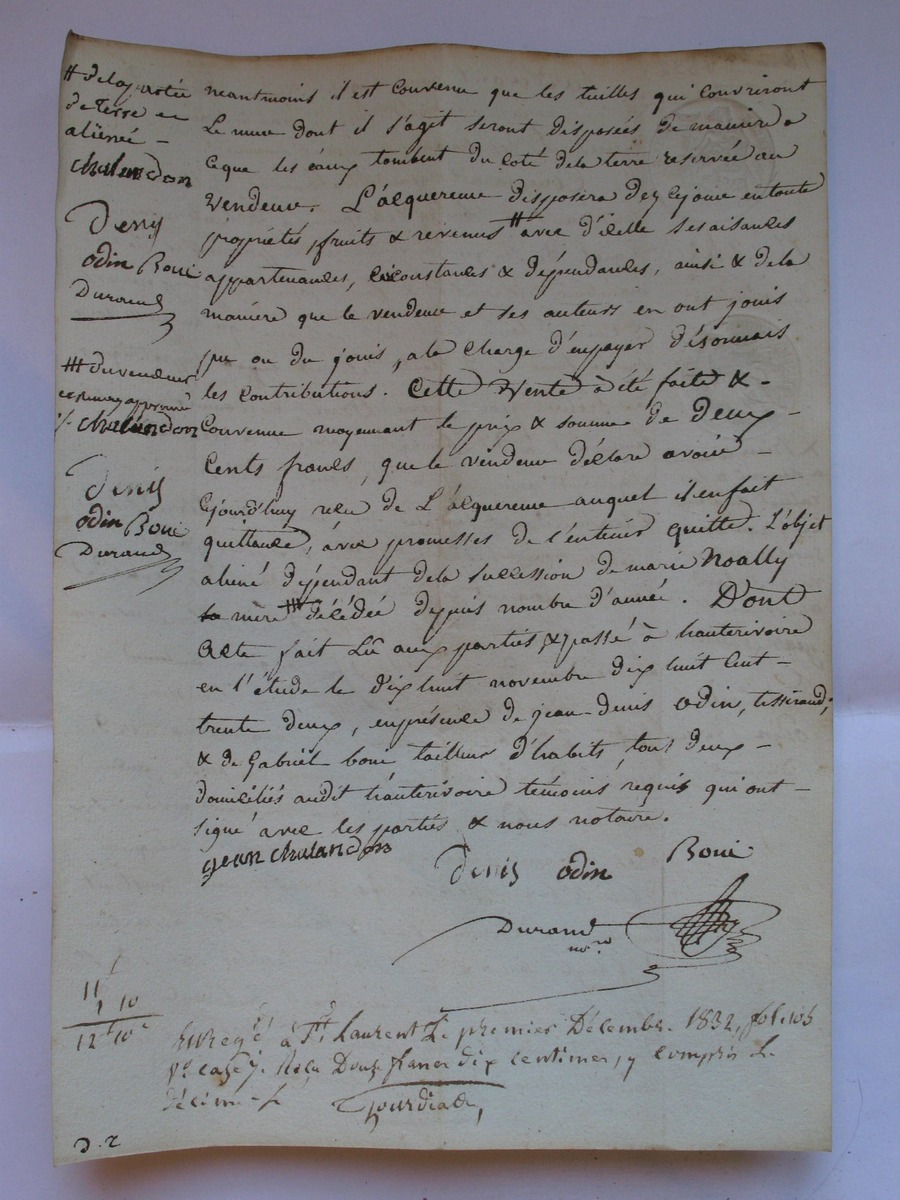 # de la partie
de terre ci
aliénée —
chalandon
Denis
odin Boui
Durand
### du vendeur
chalandon
Denis
odin Boui
Durand
neantmoins il est Convenu que les tuilles qui Couvriront
Le mure dont il s'agit seront disposées de manière a
ceque les eaux tombent du coté dela terre reservée au
vendeur. L'acquereur disposera dez cejour en toute
propriétés, fruits & revenus # avec d'icelle ses aisances
appartenances, circonstances & dépendances, ainsi & dela
manière que le vendeur et ses auteurs en ont jouis
pu ou du jouir, ala charge d'enpayer désormais
les contributions. Cette vente a été faite & -
Convenue moyennant le prix & somme de deux -
Cents francs, que le vendeur déclare avoir -
cejourd'huy reçu de L'acquereur auquel il enfait
quittance, avec promesses de l'entenir quitte. L'objet
aliéné dépendant dela succession de marie Noally
sa mère ### décédée depuis nombre d'année. Dont
Acte fait Lû aux parties & passé à hauterivoire
en l'étude le dix huit novembre dix huit Cent -
trente deux, enprésence de jean-denis odin, tisserand,
& de Gabriel boui tailleur d'habits, tous deux -
domiciliés audit hauterivoire témoins requis qui ont -
signé avec les parties & nous notaire.
jean chalandon
Denis odin Boui
Durand
nore
11f
1 10
12f 10c
Enregé à St Laurent Le premier Décembre 1832, fol. 105
vo case 7. Reçu Douze francs dix centimes, y compris Le
décime
D. 2